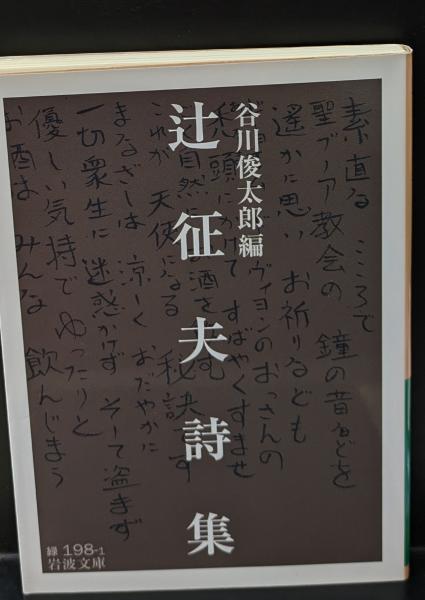 谷川俊太郎編
辻征夫詩集
素直な こころで
聖ブノア教会の 鐘の音などを
遥かに思い お祈りなども
ヴィヨンのおっさんの
すばやくすませ
自然に お酒を
これが 天使になる 秘訣です
まなざしは 涼しく おだやかに
一切衆生に 迷惑かけず そして盗まず
優しい気持で ゆったりと
お酒は みんな 飲んじまう
緑 198-1
岩波文庫